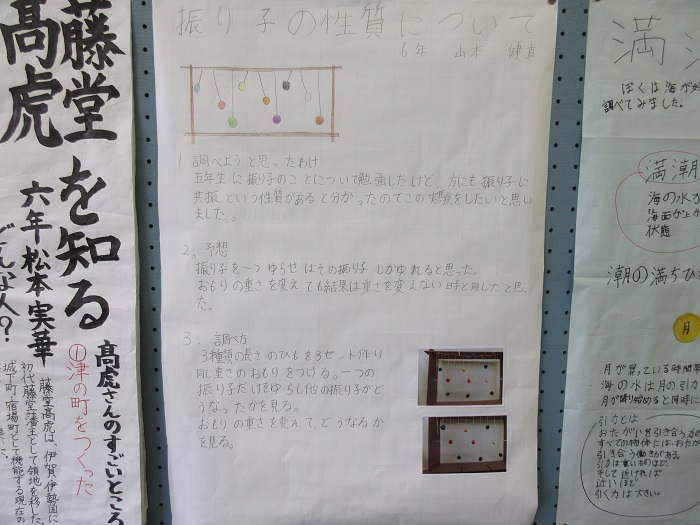 藤堂
高虎
を知る
六年 松本 実華
どんな人?
高虎さんのすごいところ
①津の町をつくった
藤堂高虎は、伊賀伊勢国に
初代藤堂藩主として領地を移した。
城下町・宿場町として機能する現在の
振り子の性質について
6年 山本 健直
1. 調べようと思ったわけ
五年生に振り子のことについて勉強したけど、方にも振り子に
共振という性質があると分かったのでこの実験をしたいと思い
ました。
2、予想
振り子を一つゆらせばその振り子しかゆれると思った。
おもりの重さを変えても結果は重さを変えない時と同じだと思っ
た。
3、調べ方
3種類の長さのひもを3セット作り
同じ重さのおもりをつける。一つの
振り子だけをゆらし他の振り子がど
うなったかを見る。
おもりの重さを変えて、どうなるか
を見る。
満
ぼくは海が
調べてみました。
満潮
海の水が
海面が上が
状態
潮の満ちひ
月
月が昇っている時間帯
海の水は月の引
月が降り始めると同時に
引力とは
おたがいを引き合う力の
すべての物体には、おたが
引き合う働きがある
引力は重いものほど、
そして近ければ
近いほど
引く力は大きい。